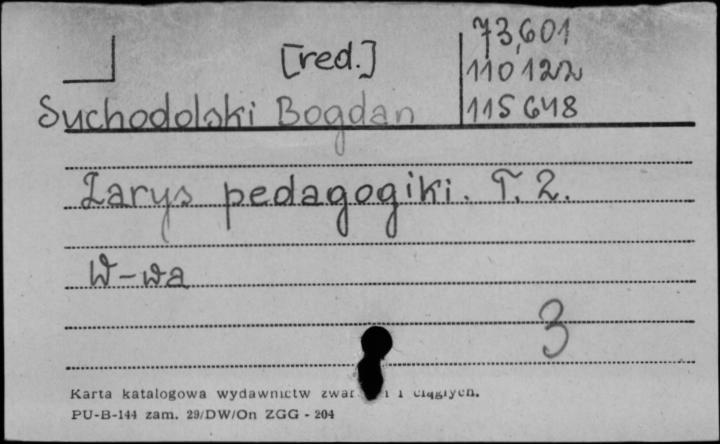 73,601
[red.]
110122
Suchodolski Bogdan
115648
Zarys pedagogiki. T. 2.
W-wa
3
Karta katalogowa wydawnictw i ciągłych.
PU-B-144 zam. 29/DW/On ZGG - 204